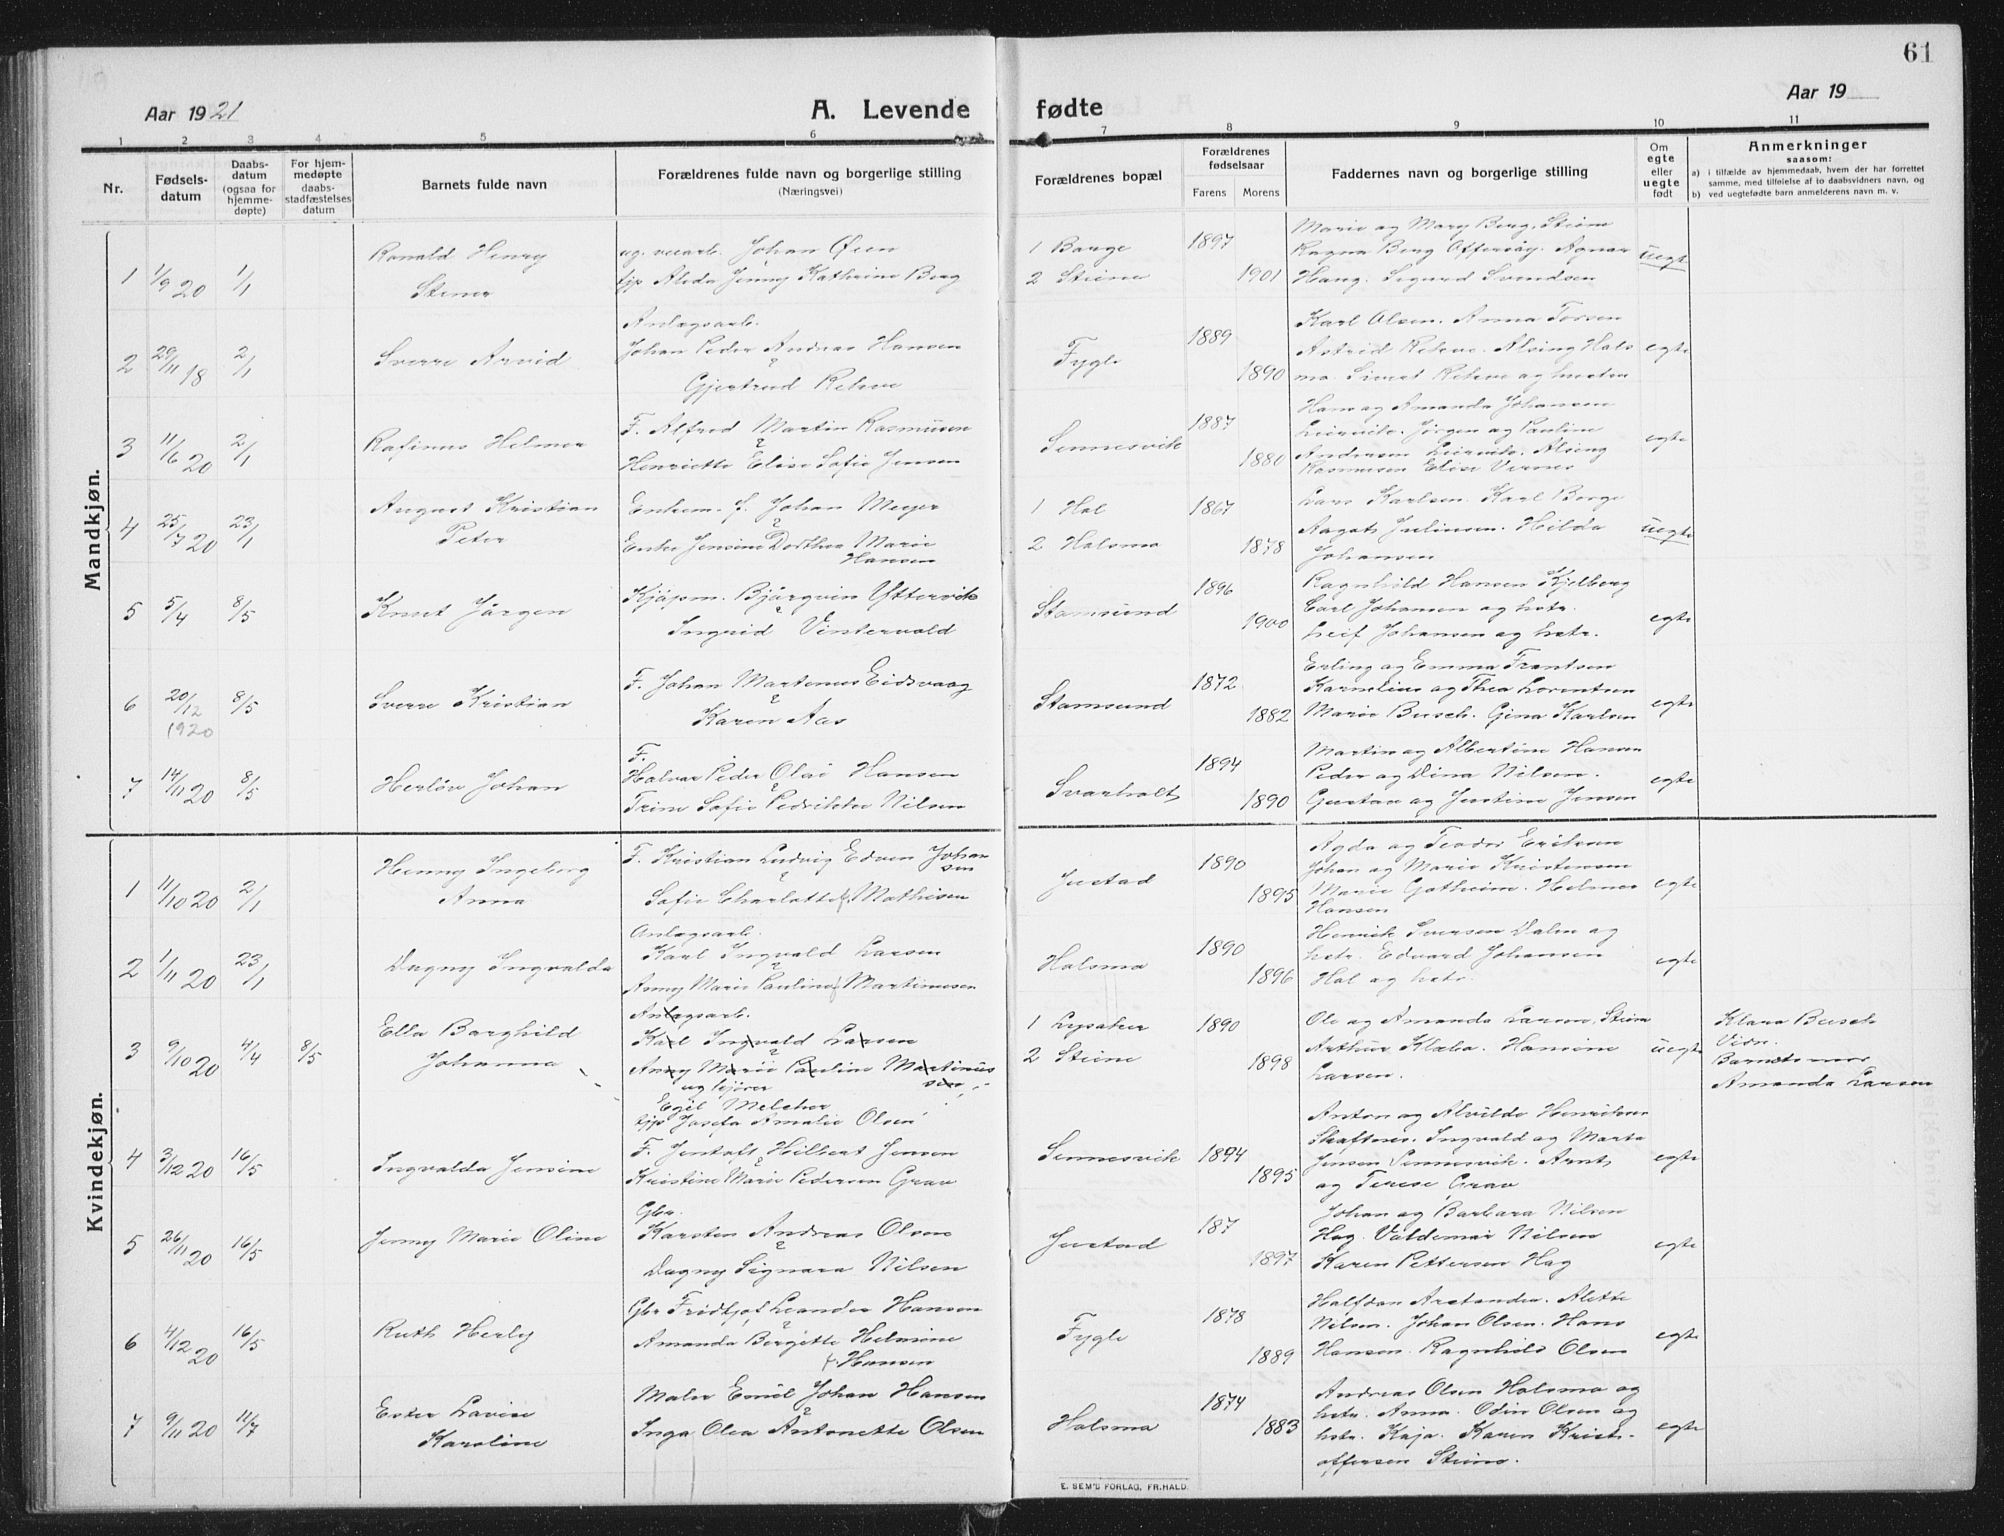 61
Aar 1921
A. Levende fødte
Aar 19
1 2 3 4 5 6 7 8 9 10 11
Nr.
Fødsels-
datum
Daabs-
datum
(ogsaa for
hjemme-
døpte)
For hjem-
medøpte
daabs-
stadfæstelses
datum
Barnets fulde navn
Forældrenes fulde navn og borgerlige stilling
(Næringsvei)
Forældrenes bopæl
Forældrenes
fødselsaar
Farens Morens
Faddernes navn og borgerlige stilling
Om
egte
eller
uegte
født
Anmerkninger
saasom:
a) i tilfælde av hjemmedaab, hvem der har forrettet
samme, med tilføielse af to daabsvidners navn, og
b) ved uegtefødte barn anmelderens navn m. v.
Mandkjøn.
1 1/9 20 1/1
Ronald Henry
Stener
ug. Johan Øien
pp Alida Jenny Kathrine Berg
1 Borge
2 Steine
1897
1901
Marie og Mary Berg, Steine
Ragna Berg Offersøy. Agnar
Haug. Sigurd Svendsen
uegte
2 29/11 18 2/1
Sverre Arvid
Anlægsarb.
Johan Peder Andreas Hansen
Gjertrud Rekve
Fygle
1889
1890
Karl Olsen. Anna Torsen
Astrid Rekve. Alsing Hals
ma. Sivert Rekve og hustru
egte
3 11/6 20 2/1
Rafinus Helmer
F. Alfred Martin Rasmussen
Henriette Elise Sofie Jensen
Sennesvik
1887
1880
Hans og Amanda Johansen
Leirvik. Jørgen og Pauline
Andersen Leirvik. Alsing
Rasmussen Elise Vernes
egte
4 25/7 20 23/1
August Kristian
Peter
Enkem. f. Johan Meyer
Enke Jensine Dorthea Marie
Hansen
1 Hol
2 Holsmo
1867
1878
Lars Karlsen. Karl Borge
Aagot Julinsen. Hilda
Johansen
uegte
5 5/4 8/5
Knut Jørgen
Kjøpm. Bjørgvin Yttervik
Ingrid Vintervold
Stamsund
1896
1900
Ragnhild Hansen Kjelberg
Carl Johansen og hstr.
Leif Johansen og hstr.
egte
6 20/12 1920 8/5
Sverre Kristian
F. Johan Martenus Eidsvaag
Karen Aas
Stamsund
1872
1882
Erling og Emma Frantsen
Kornelius og Thea Lorentsen
Marie Busch. Gina Karlsen
egte
7 14/11 20 8/5
Herløv Johan
F.
Halvar Peder Olai Hansen
Trine Sofie Pedrikke Nilsen
Svarholt
1894
1890
Martin og Albertine Hansen
Peder og Dina Nilsen.
Gustav og Justine Jensen
egte
Kvindekjøn.
1 11/10 20 2/1
Henny Ingeborg
Anna
F. Kristian Ludvig Edven Johan
sen
Sofie Charlotte f. Mathisen
Justad
1890
1895
Agda og Teodor Eriksen
Johan og Marie Kristensen
Marie Gotheim. Helmer
Hansen
egte
2 1/11 20 23/1
Dagny Ingvalda
Anlægsarb.
Karl Ingvald Larsen
Anny Marie Pauline f. Martinusen
Holsmo
1890
1896
Henrik Iversen Dalen og
hstr. Edvard Johansen
Hol og hstr.
egte
3 9/10 20 4/4 8/5
Ella Borghild
Johanna
Anlægsarb.
Karl Ingvald Larsen
Anny Marie Pauline Martinus
sen
ug
Egil Melcher
pp Josefa Amalie Olsen
1 Lysaker
2 Steine
1890
1898
Ole og Amanda Larsen, Steine
Arthur Klæbo. Hansine
Larsen.
uegte
Klara Busch
Vidn.
Barnets mor
Amanda Larsen
4 3/12 20 16/5
Ingvalda Jensine
F. Jentoft Hilbert Jensen
Kristine Marie Pedersen Grav
Sennesvik
1894
1895
Anton og Alvilde Henriksen
Skaftnes. Ingvald og Marta
Jensen Sennesvik. Arnt
og Terese Grav
egte
5 26/11 20 16/5
Jenny Marie Oline
Gbr.
Karsten Andreas Olsen
Dagny Signora Nilsen
Justad
187
1897
Johan og Barbara Nilsen
Hag. Valdemar Nilsen
Karen Pettersen Hag
egte
6 4/12 20 16/5
Ruth Herly
Gbr Fridtjof Leander Hansen
Amanda Bergitte Helmine
f. Hansen
Fygle
1878
1889
Halfdan Arstander. Alette
Nilsen. Johan Olsen. Hans
Hansen. Ragnhild Olsen
egte
7 9/11 20 11/7
Ester Lovise
Karoline
Maler Emil Johan Hansen
Inga Olea Antonette Olsen
Holsmo
1874
1883
Andreas Olsen Holsmo og
hstr. Anna. Odin Olsen og
hstr. Kaja. Karen Krist-
offersen Steine.
egte
E. SEM'S FORLAG, FR.HALD.